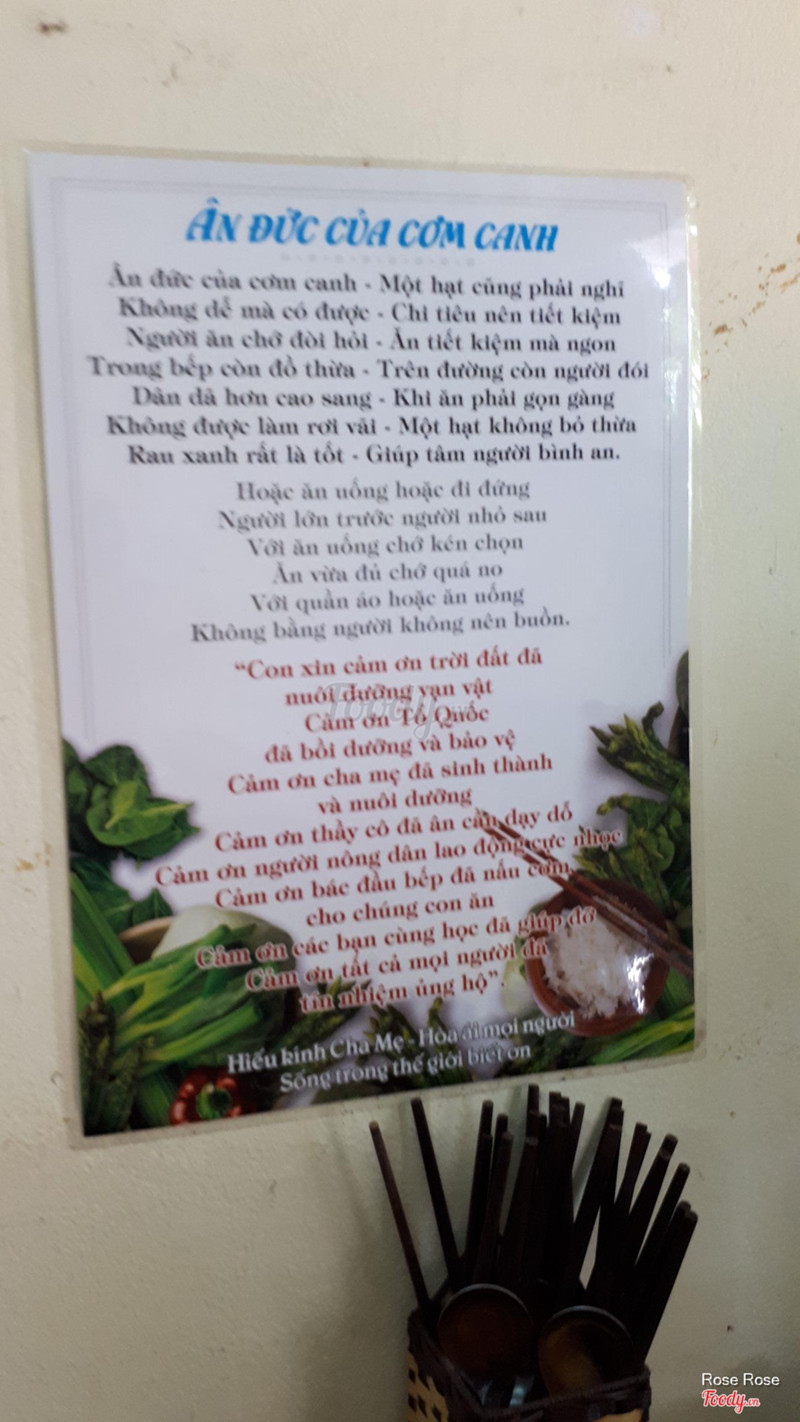 ÂN ĐỨC CỦA CƠM CANH
Ân đức của cơm canh - Một hạt cũng phải nghĩ
Không dễ mà có được - Chi tiêu nên tiết kiệm
Người ăn chớ đòi hỏi - Ăn tiết kiệm mà ngon
Trong bếp còn đồ thừa - Trên đường còn người đói
Dân dã hơn cao sang - Khi ăn phải gọn gàng
Không được làm rơi vãi - Một hạt không bỏ thừa
Rau xanh rất là tốt - Giúp tâm người bình an.
Hoặc ăn uống hoặc đi đứng
Người lớn trước người nhỏ sau
Với ăn uống chớ kén chọn
Ăn vừa đủ chớ quá no
Với quần áo hoặc ăn uống
Không bằng người không nên buồn.
"Con xin cảm ơn trời đất đã
nuôi dưỡng vạn vật
Cảm ơn Tổ Quốc
đã bồi dưỡng và bảo vệ
Cảm ơn cha mẹ đã sinh thành
và nuôi dưỡng
Cảm ơn thầy cô đã ân cần dạy dỗ
Cảm ơn người nông dân lao động cực nhọc
Cảm ơn bác đầu bếp đã nấu cơm
cho chúng con ăn
Cảm ơn các bạn cùng học đã giúp đỡ
Cảm ơn tất cả mọi người đã
tín nhiệm ủng hộ".
Hiếu kính Cha Mẹ - Hòa ái mọi người
Sống trong thế giới biết ơn
Foody.vn
Rose Rose
Foody.vn